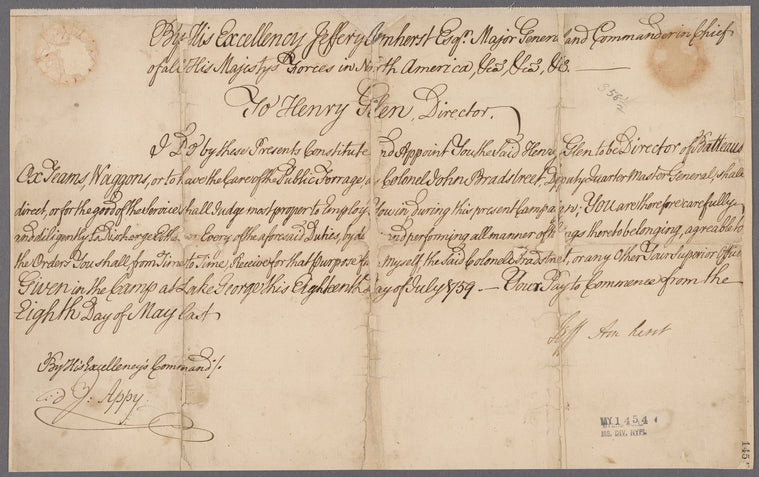 By His Excellency Jeffery Amherst Esqr. Major General and Commander in Chief
of all His Majestys Forces in North America, &ca, &ca, &c.
To Henry Glen, Director.
I Do by these Presents Constitute and Appoint You the Said Henry Glen to be Director of Batteaus
Ox Teams, Waggons, or to have the Care of the Public Forrage, as Colonel John Bradstreet, Deputy Quarter Master General, shall
direct, or for the good of the Service shall Judge most proper to Employ You in during this present Campaign; You are therefore carefully
and diligently to Discharge or Every of the aforesaid Duties, by and performing all manner of things thereto belonging, agreable to
the Orders You shall from Time to Time, Receive for that Purpose from Myself, the Said Colonel Bradstreet, or any Other Your Superior
Given in the Camp at Lake George this Eighteenth Day of July 1759 — Your Pay to Commence from the
Eighth Day of May last
Jeff Amherst
By His Excellency's Command
J: Appy
MY 1454
MS. DIV. NYPL
145